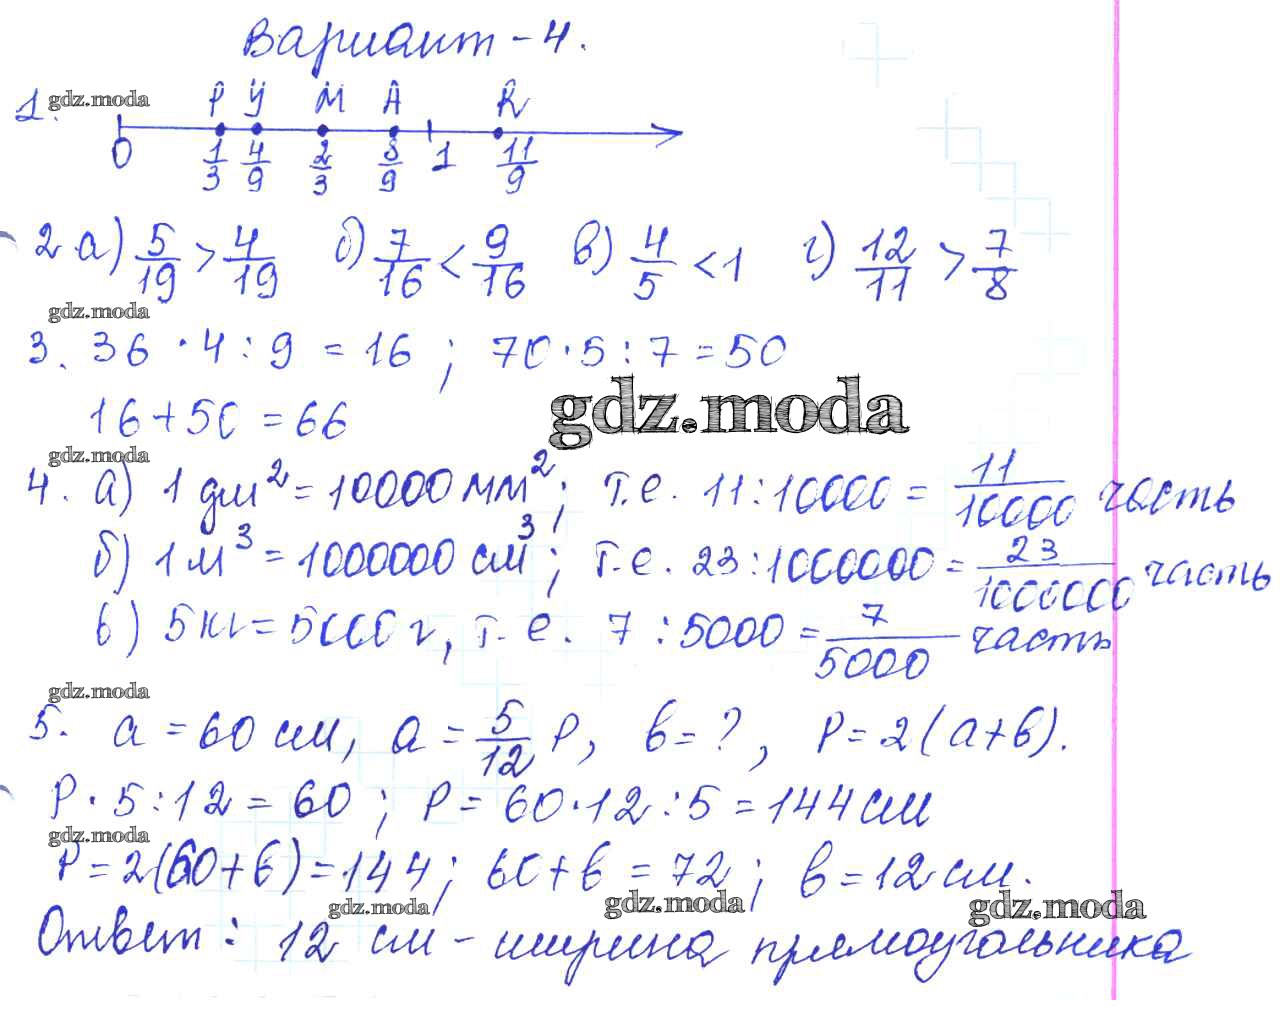 Вариант - 4.
1. gdz.moda P У M A R
0 1/3 4/9 2/3 8/9 1 11/9
2 а) 5/19 > 4/19 б) 7/16 < 9/16 в) 4/5 < 1 г) 12/11 > 7/8
gdz.moda
3. 36 · 4 : 9 = 16 ; 70 · 5 : 7 = 50
16 + 50 = 66
gdz.moda
gdz.moda
4. а) 1 дм² = 10000 мм² ; т.е. 11 : 10000 = 11/10000 часть
б) 1 м³ = 1000000 см³ ; т.е. 23 : 1000000 = 23/1000000 часть
в) 5 кг = 5000 г, т.е. 7 : 5000 = 7/5000 часть
gdz.moda
5. a = 60 см, a = 5/12 P, в = ? , P = 2 (a + в).
P · 5 : 12 = 60 ; P = 60 · 12 : 5 = 144 см
gdz.moda
P = 2 (60 + в) = 144 ; 60 + в = 72 ; в = 12 см.
gdz.moda gdz.moda gdz.moda
Ответ : 12 см - ширина прямоугольника